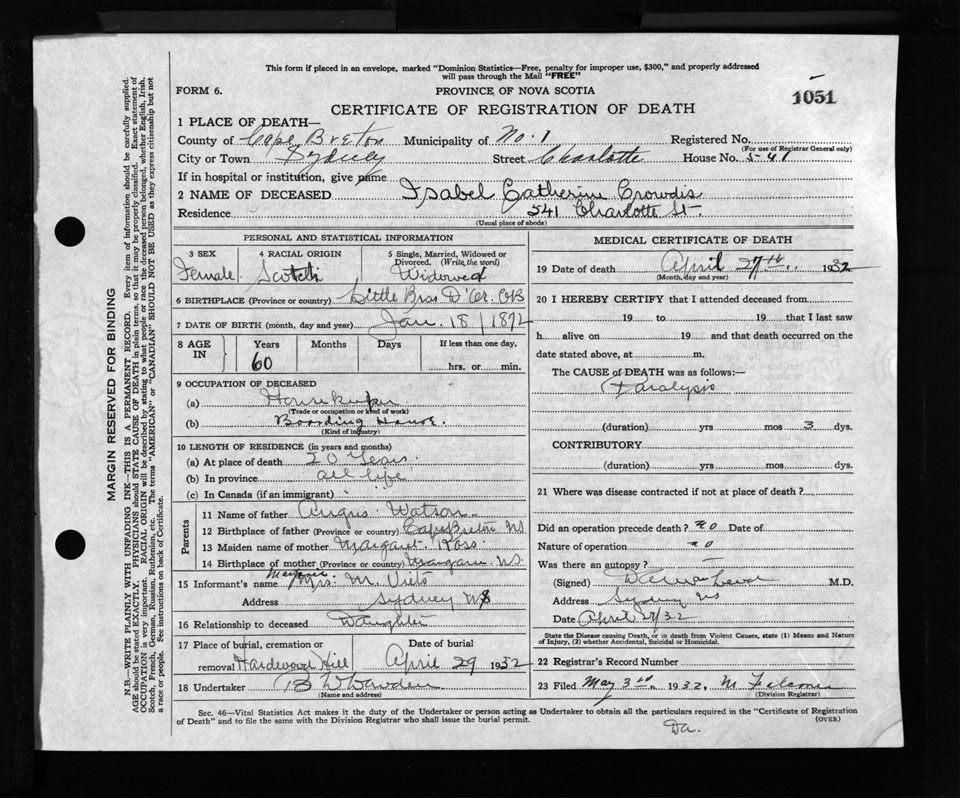 This form if placed in an envelope, marked "Dominion Statistics—Free, penalty for improper use, $300," and properly addressed
will pass through the Mail "FREE"
FORM 6. PROVINCE OF NOVA SCOTIA
1051
CERTIFICATE OF REGISTRATION OF DEATH
1 PLACE OF DEATH—
County of Cape Breton Municipality of No. 1 Registered No.
(For use of Registrar General only)
City or Town Sydney Street Charlotte House No. 541
If in hospital or institution, give name
2 NAME OF DECEASED Isabel Catherine Crowdis
Residence 541 Charlotte St.
(Usual place of abode)
PERSONAL AND STATISTICAL INFORMATION
3 SEX 4 RACIAL ORIGIN 5 Single, Married, Widowed or
Divorced. (Write the word)
Female. Scotch Widowed
6 BIRTHPLACE (Province or country) Little Bras D'Or. CB
7 DATE OF BIRTH (month, day and year) Jan. 18 / 1872
8 AGE IN Years Months Days If less than one day,
60 hrs. or min.
9 OCCUPATION OF DECEASED
(a) Housekeeper
(Trade or occupation or kind of work)
(b) Boarding House.
(Kind of industry)
10 LENGTH OF RESIDENCE (in years and months)
(a) At place of death 20 Years.
(b) In province all life
(c) In Canada (if an immigrant)
Parents
11 Name of father Angus Watson
12 Birthplace of father (Province or country) Cape Breton NS
13 Maiden name of mother Margaret Ross.
14 Birthplace of mother (Province or country) Margaree NS.
15 Informant's name Mrs. M.
Address Sydney NS
16 Relationship to deceased Daughter
17 Place of burial, cremation or Date of burial
removal Hardwood Hill April 29 1932
18 Undertaker
(Name and address)
MEDICAL CERTIFICATE OF DEATH
19 Date of death April 27th. 1932
(Month, day and year)
20 I HEREBY CERTIFY that I attended deceased from
19 to 19 that I last saw
h alive on 19 and that death occurred on the
date stated above, at m.
The CAUSE of DEATH was as follows:
Paralysis
(duration) yrs mos 3 dys.
CONTRIBUTORY
(duration) yrs mos dys.
21 Where was disease contracted if not at place of death?
Did an operation precede death? no Date of
Nature of operation no
Was there an autopsy?
(Signed) M.D.
Address Sydney NS
Date April 27/32
State the Disease causing Death, or in death from Violent Causes, state (1) Means and Nature
of Injury, (2) whether Accidental, Suicidal or Homicidal.
22 Registrar's Record Number
23 Filed May 3rd. 1932, M
(Division Registrar)
Sec. 46—Vital Statistics Act makes it the duty of the Undertaker or person acting as Undertaker to obtain all the particulars required in the "Certificate of Registration
of Death" and to file the same with the Division Registrar who shall issue the burial permit. (OVER)
Da.
MARGIN RESERVED FOR BINDING
N.B.—WRITE PLAINLY WITH UNFADING INK—THIS IS A PERMANENT RECORD. Every item of information should be carefully supplied.
AGE should be stated EXACTLY. PHYSICIANS should STATE CAUSE OF DEATH in plain terms, so that it may be properly classified. Exact statement of
OCCUPATION is very important. RACIAL ORIGIN will be described by stating to what people or race the deceased person belonged, whether English, Irish,
Scotch, French, German, Russian, Ruthenian, etc. The terms "AMERICAN" or "CANADIAN" SHOULD NOT BE USED as they express citizenship but not
a race or people. See instructions on back of Certificate.